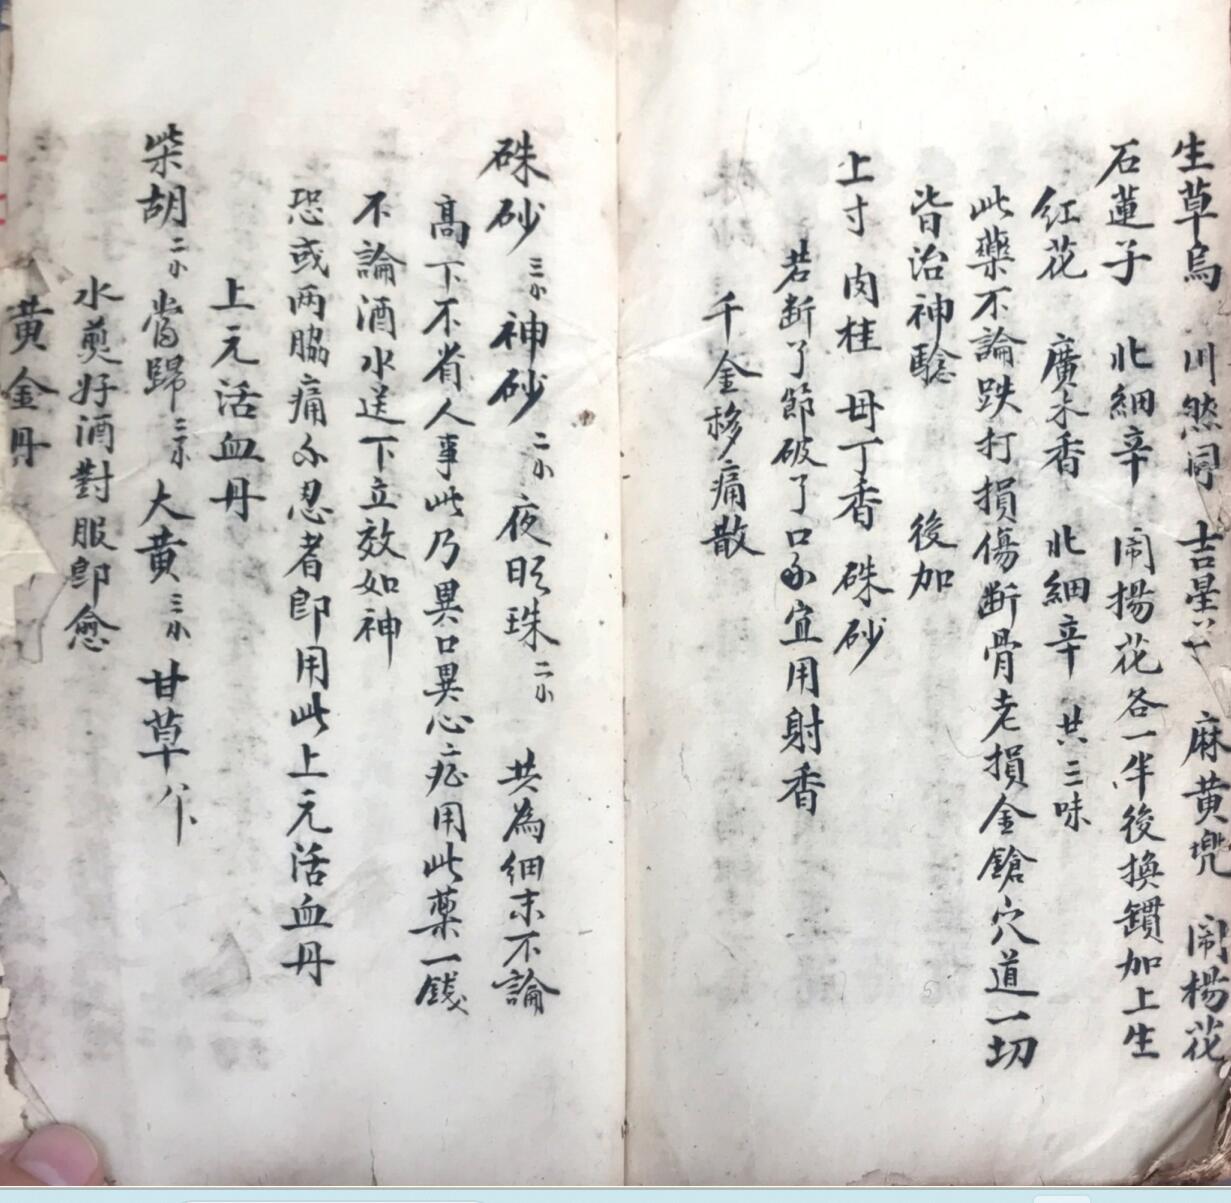 生草烏 川然同 吉星 麻黃兜 鬧楊花
石蓮子 北細辛 鬧揚花各一半後換鑎加上生
紅花 廣木香 北細辛 共三味
此藥不論跌打損傷斷骨老損金鎗穴道一切
皆治神驗 後加
上寸 肉桂 母丁香 硃砂
若斷了節破了口不宜用射香
千金移痛散
硃砂三小神砂二小夜明珠二小 共為細末不論
高下不省人事此乃異口異心症用此藥一錢
不論酒水送下立效如神
恐或两脇痛不忍者即用此上元活血丹
上元活血丹
柴胡二小當歸三小大黃三小甘草
水煎好酒對服即愈
黃金丹